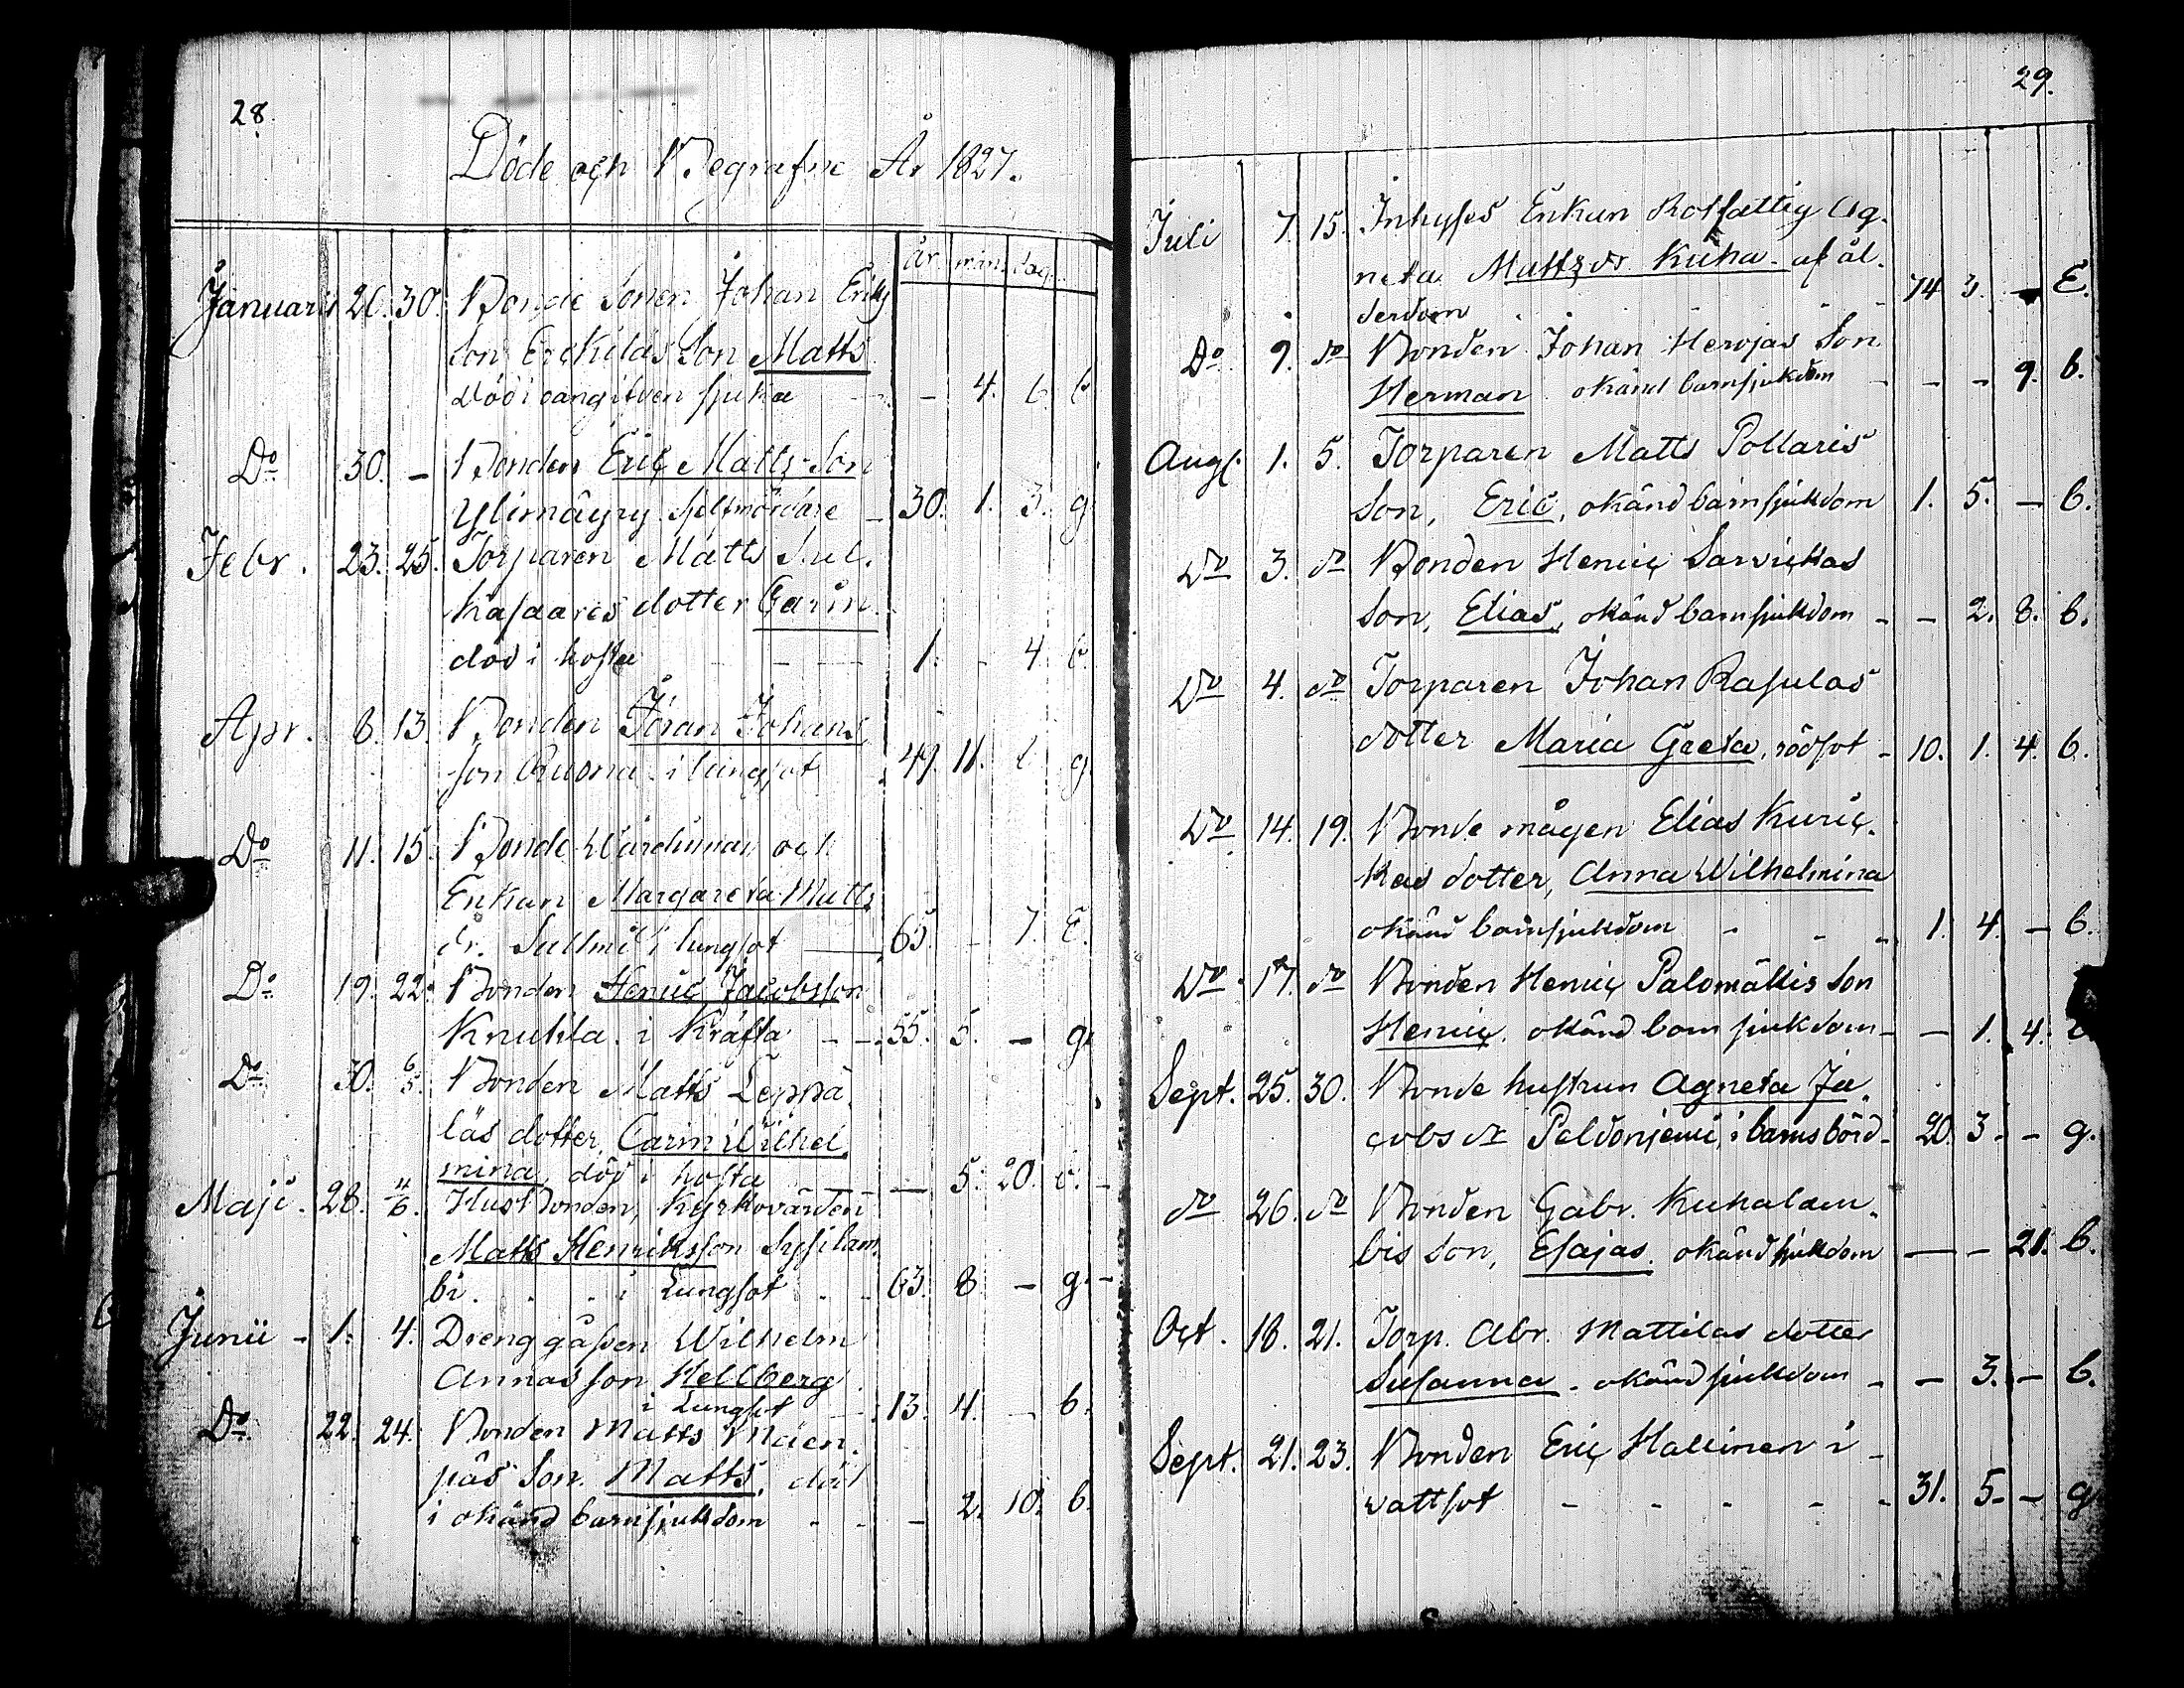 28.
Döde och Begrafne År 1827.
År. mån. dag.
Januarii 26. 30. Bonde Sonen Johan Eriks
son Erckiläs Son Matts
död i oangifven sjuka - 4. 6. b.
Do 30. - Bonden Eric Matts Son
Ylimäyry sjelfmördare - 30. 1. 3. g.
Febr. 23. 25. Torparen Matts Sul.
kasaares dotter Carin
död i hosta - - - 1. - 4. b.
Apr. 8. 13. Bonden Jöran Johans
son Ruona i lungsot 49. 11. g.
Do 11. 15. Bonde Wärdinnan och
Enkan Margareta Matts
dr. Sullmi i lungsot 65. - 7. E.
Do 19. 22. Bonden Henric Jacobsson
Knuttla i Kräfta - - 55. 5. - g.
Do 30. 6/5. Bonden Matts Leppä
läs dotter Carin Wilhel
mina, död i hosta - 5. 20. b. -
Maji. 28. 4/6. Husbonden, Kyrkovärden
Matts Henriksson Sysilam
bi . . . i Lungsot . - 63. 8. - g. -
Junii - 1. 4. Drenggåssen Wilhelm
Annas son Hellberg
i Lungsot - 13. 4. - b.
Do 22. 24. Bonden Matts Mäen.
päs Son Matts, död
i okänd barnsjukdom - - - 2. 10. b.
29.
Juli 7. 15. Inhyses Enkan Rotfattig Ag.
neta Mattsdr. Kuha - af ål.
derdom . - - 74 3. - E.
Do 9. do Bonden Johan Herojas Son
Herman okänd barnsjukdom - - - 9. b.
Aug. 1. 5. Torparen Matts Pollaris
Son, Eric, okänd barnsjukdom 1. 5. - b.
Do 3. do Bonden Henric Sarvickas
son, Elias, okänd barnsjukdom - - 2. 8. b.
Do 4. do Torparen Johan Rasulas
dotter Maria Greta, rödsot - 10. 1. 4. b.
Do 14. 19. Bonde mågen Elias Kuric.
kas dotter, Anna Wilhelmina
okänd barnsjukdom - - - 1. 4. - b.
Do 17. do Bonden Henric Palomäkis Son
Henric. okänd barn sjukdom - - 1. 4.
Sept. 25. 30. Bonde hustrun Agneta Ja.
cobs dr Peldoniemi, i barnsbörd - 20. 3. - g.
do 26. do Bonden Gabr. Kuhalam.
bis son, Esajas. okänd sjukdom - - 21. b.
Oct. 18. 21. Torp. Abr. Mattilas dotter
Susanna - okänd sjukdom - - 3. - b.
Sept. 21. 23. Bonden Eric Hallinen i -
vattsot - - - - - 31. 5. - g